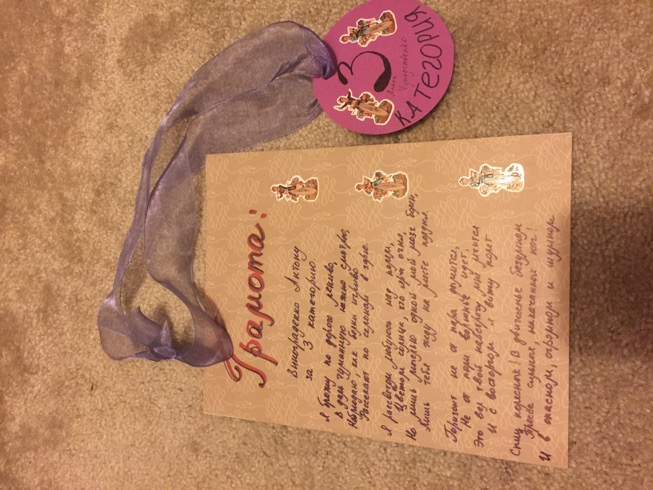 Грамота:
Винограденко Антону
за 3 категорию.
Я брожу по дороге лениво,
В даль туманную нежно смотрю,
Наблюдаю, как белки игриво
Рассекают по склонам в зарю.
Я рассветом любуюсь над морем,
Цветом солнца, что ярче огня,
Но лишь мыслью одной мой мозг болен,
Лишь тебя жду на месте полдня.
Горизонт не от пара дымится,
Не от пара волненье идет,
Это вел твой навстречу мне мчится
И с восторгом я вижу полет
Спиц колесных! В движенье безумном
Пресса сильного, накачанных ног!
И в опасном, огромном и шумном
3
Антон
Виноградненко
КАТЕГОРИЯ